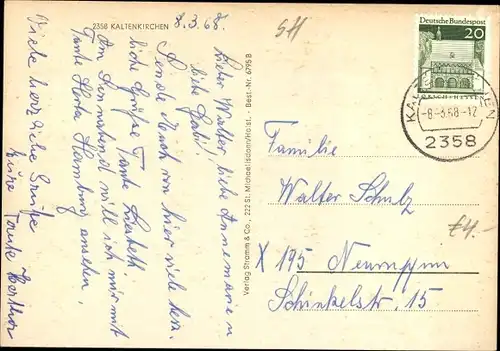 2358 KALTENKIRCHEN
8.3.68.
Lieber Walter, liebe Annemarie u
liebe Gabi!
Sende Euch von hier viele herz-
liche Grüße Tante Lisbeth.
Am Sonnabend will ich mir mit
Tante Herta Hamburg ansehen.
Viele herzliche Grüße
Eure Tante Herta
Verlag Stramm & Co., 222 St. Michaelisdonn/Holst. - Best.-Nr. 6795 B
SH
Deutsche Bundespost
20
-8-3.68-12
2358
Familie
Walter Schulz
€4.-
X 195 Neuruppin
Schinkelstr. 15